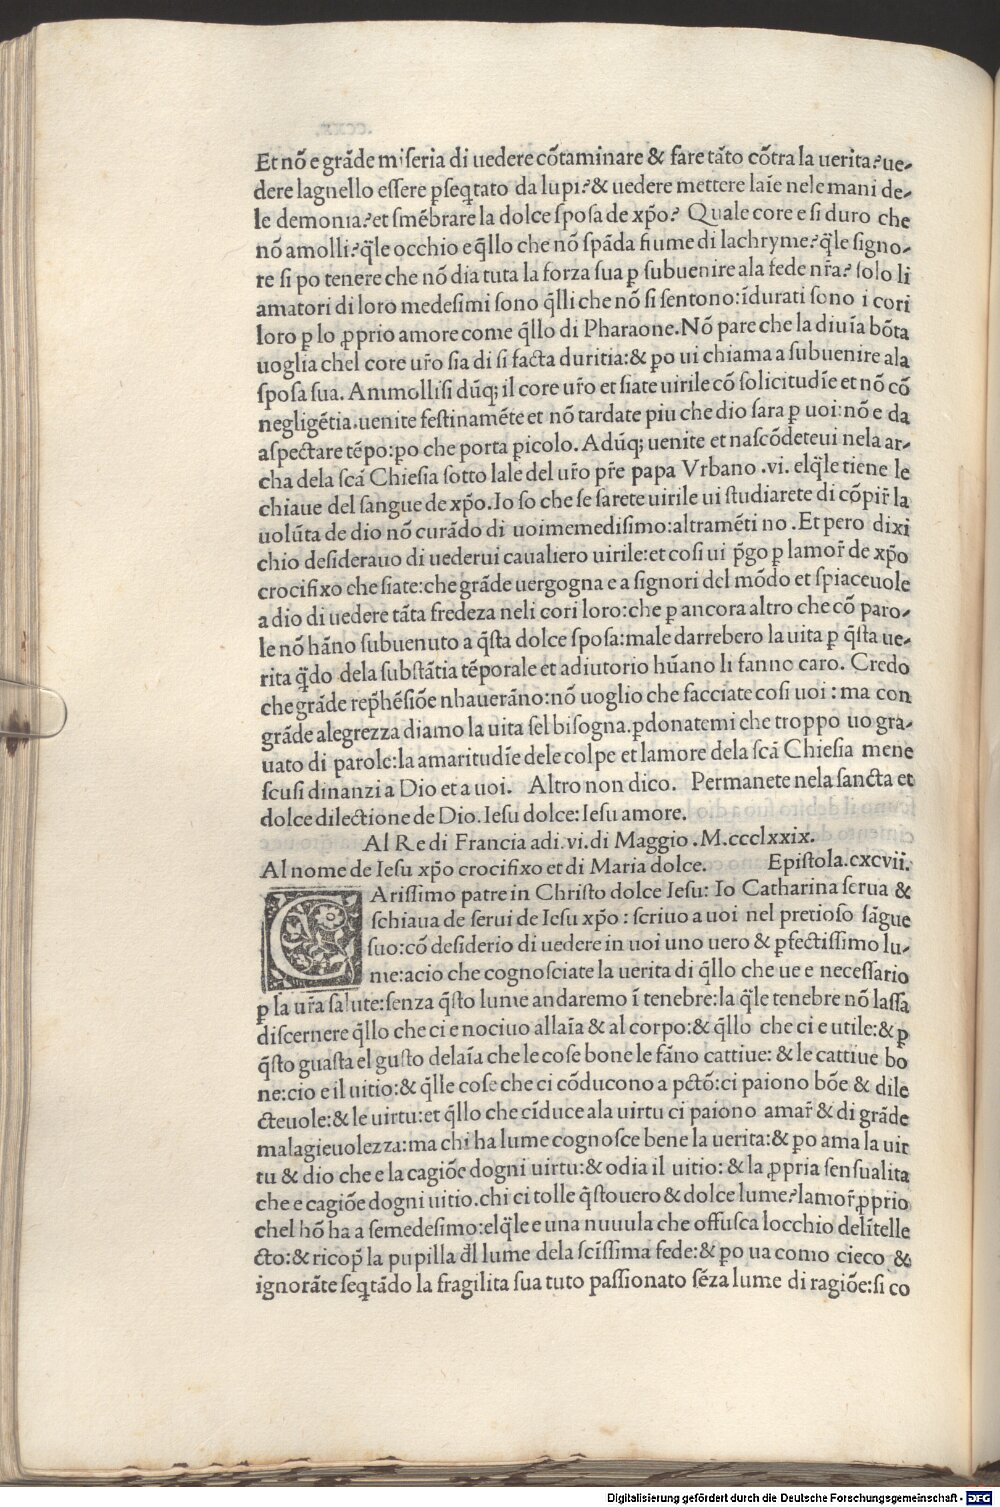 Et nō e grāde miseria di uedere cōtaminare & fare tāto cōtra la uerita? ue-
dere lagnello essere ꝑseqtato da lupi? & uedere mettere laīe nele mani de-
le demonia? et smēbrare la dolce sposa de xp̄o? Quale core e si duro che
nō amolli? q̄le occhio e q̄llo che nō spāda fiume di lachryme? q̄le signo-
re si po tenere che nō dia tuta la forza sua ꝑ subuenire ala fede nr̄a? solo li
amatori di loro medesimi sono q̄lli che nō si sentono: īdurati sono i cori
loro ꝑ lo ꝓprio amore come q̄llo di Pharaone. Nō pare che la diuīa bōta
uoglia chel core ur̄o sia di si facta duritia: & ꝑo ui chiama a subuenire ala
sposa sua. Ammollisi dūq; il core ur̄o et siate uirile cō solicitudīe et nō cō
negligētia. uenite festinamēte et nō tardate piu che dio sara ꝑ uoi: nō e da
aspectare tēpo: ꝑo che porta picolo. Adūq; uenite et nascōdeteui nela ar-
cha dela scā Chiesia sotto lale del ur̄o pr̄e papa Vrbano .vi. elq̄le tiene le
chiaue del sangue de xp̄o. Io so che se sarete uirile ui studiarete di cōpir̄ la
uolūta de dio nō curādo di uoimemedisimo: altramēti no . Et pero dixi
chio desiderauo di uederui caualiero uirile: et cosi ui p̄go ꝑ lamor̄ de xp̄o
crocifixo che siate: che grāde uergogna e a signori del mōdo et spiaceuole
a dio di uedere tāta fredeza neli cori loro: che ꝑ ancora altro che cō paro-
le nō hāno subuenuto a q̄sta dolce sposa: male darrebero la uita ꝑ q̄sta ue-
rita q̄do dela substātia tēporale et adiutorio hūano li fanno caro. Credo
che grāde rep̄hēsiōe nhauerāno: nō uoglio che facciate cosi uoi : ma con
grāde alegrezza diamo la uita sel bisogna. ꝑdonatemi che troppo uo gra-
uato di parole: la amaritudīe dele colpe et lamore dela scā Chiesia mene
scusi dinanzi a Dio et a uoi. Altro non dico. Permanete nela sancta et
dolce dilectione de Dio. Iesu dolce: Iesu amore.
Al Re di Francia adi .vi. di Maggio .M.ccclxxix.
Al nome de Iesu xp̄o crocifixo et di Maria dolce. Epistola.cxcvii.
CArissimo patre in Christo dolce Iesu: Io Catharina serua &
schiaua de serui de Iesu xp̄o : scriuo a uoi nel pretioso sāgue
suo: cō desiderio di uedere in uoi uno uero & ꝑfectissimo lu-
me: acio che cognosciate la uerita di q̄llo che ue e necessario
ꝑ la ur̄a salute: senza q̄sto lume andaremo ī tenebre: la q̄le tenebre nō lassa
discernere q̄llo che ci e nociuo allaīa & al corpo: & q̄llo che ci e utile: & ꝑ
q̄sto guasta el gusto delaīa che le cose bone le fāno cattiue: & le cattiue bo
ne: cio e il uitio: & q̄lle cose che ci cōducono a pctō: ci paiono bōe & dile
cteuole: & le uirtu: et q̄llo che cīduce ala uirtu ci paiono amar̄ & di grāde
malagieuolezza: ma chi ha lume cognosce bene la uerita: & ꝑo ama la uir
tu & dio che e la cagiōe dogni uirtu: & odia il uitio: & la ꝓpria sensualita
che e cagiōe dogni uitio. chi ci tolle q̄sto uero & dolce lume? lamor̄ ꝓprio
chel hō ha a semedesimo: elq̄le e una nuuula che offusca locchio delītelle
cto: & ricop̄ la pupilla d̄l lume dela scīssima fede: & ꝑo ua como cieco &
ignorāte seqtādo la fragilita sua tuto passionato sēza lume di ragiōe: si co
Digitalisierung gefördert durch die Deutsche Forschungsgemeinschaft - DFG